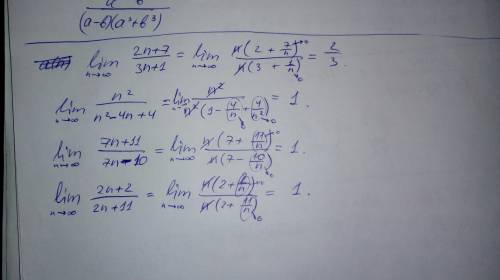 (a-b)(a³+b³)
lim n→∞ 2n+7 / 3n+1 = lim n→∞ n(2 + 7/n →0) / n(3 + 1/n →0) = 2/3.
lim n→∞ n² / n²-4n+4 = lim n→∞ n² / n²(1 - 4/n →0 + 4/n² →0) = 1.
lim n→∞ 7n+11 / 7n-10 = lim n→∞ n(7 + 11/n →0) / n(7 - 10/n →0) = 1.
lim n→∞ 2n+2 / 2n+11 = lim n→∞ n(2 + 2/n →0) / n(2 + 11/n →0) = 1.